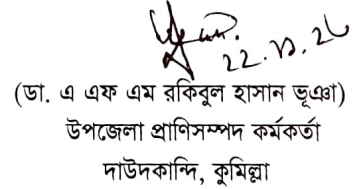 22.12.26
(ডা. এ এফ এম রকিবুল হাসান ভূঞা)
উপজেলা প্রাণিসম্পদ কর্মকর্তা
দাউদকান্দি, কুমিল্লা